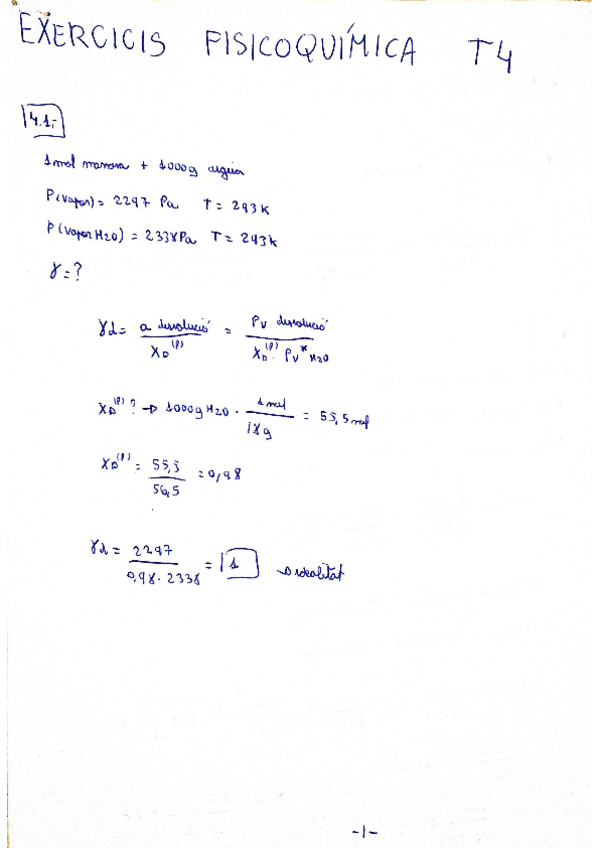 EXERCICIS FISICOQUÍMICA T4
4.1.-
1 mol manosa + 1000g aigua
P(vapor) = 2297 Pa T = 293 K
P(vapor H2O) = 2338 Pa T = 293 K
γ = ?
γd = a dissolució / XD(l) = Pv dissolució / XD(l) · Pv* H2O
XD(l) ? → 1000g H2O · 1 mol / 18g = 55,5 mol
XD(l) = 55,5 / 56,5 = 0,98
γd = 2297 / 0,98 · 2338 = 1 → idealitat
-1-